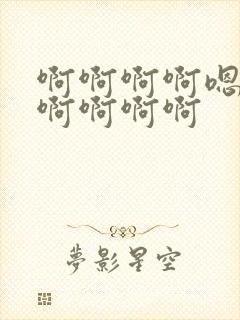 啊啊啊啊嗯
啊啊啊啊
夢影星空